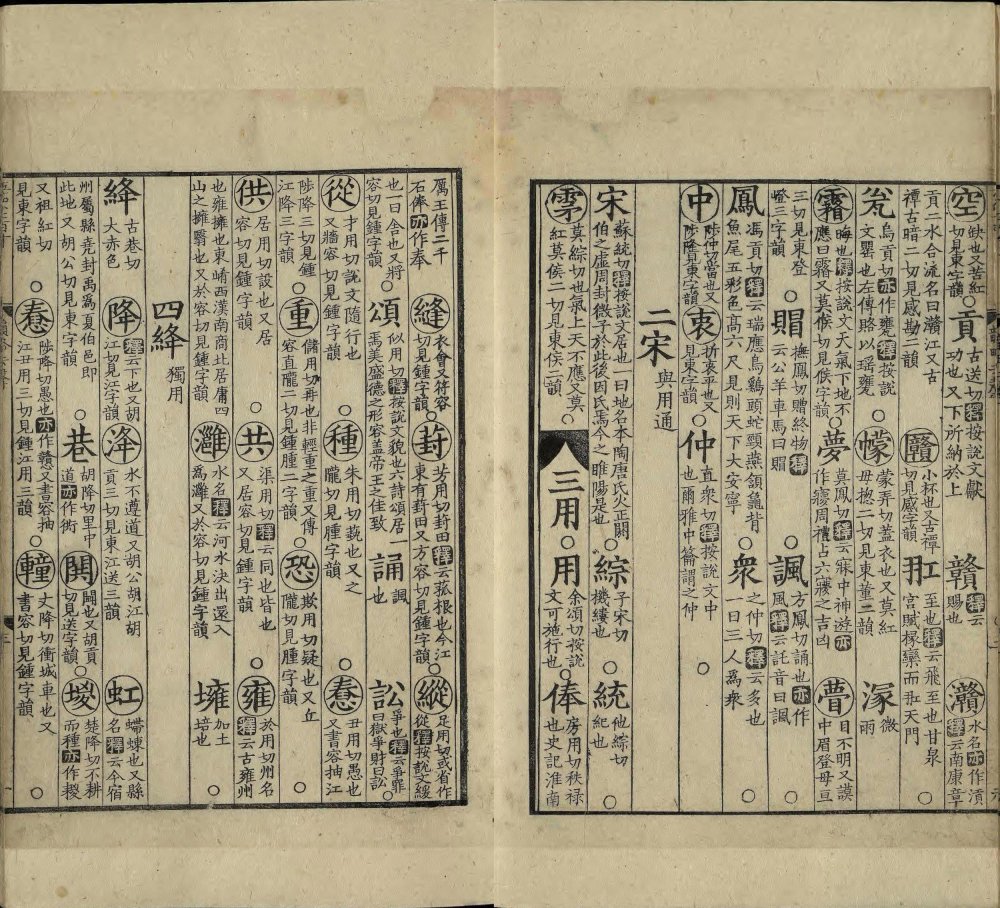 空缺也又苦紅切見東字韻○貢古送切釋按說文獻功也又下所納於上○贛釋云賜也○灨水名亦作湏釋云南康章
貢二水合流名曰灨江又古禫古暗二切見感勘二韻○小杯也又古禫切見感字韻○羾至也釋云飛至也甘泉宮賦椽欒而羾天門○
瓮烏貢切亦作甕釋按說文罌也左傳賂以瑶甕○幪蒙弄切蓋衣也又莫紅母揔二切見東董二韻○溕微雨○
霿晦也釋按說文天氣下地不應曰霿又莫候切見候字韻○夢莫鳳切釋云寐中神遊亦作㝱周禮占六㝱之吉凶○瞢目不明又謨中眉登母亘
三切見東登嶝三字韻○賵撫鳳切贈終物釋云公羊車馬曰賵○諷方鳳切誦也亦作風釋云託音曰諷○
鳳馮貢切釋云瑞應鳥鷄頭蛇頸燕頷龜背魚尾五彩色高六尺見則天下大安寧○衆之仲切釋云多也一曰三人為衆○
中陟仲切當也又陟隆見東字韻○衷折衷平也又見東字韻○仲直衆切釋按說文中也爾雅中籥謂之仲○
二宋與用通
宋蘇統切釋按說文居也一曰地名本陶唐氏火正閼伯之虛周封微子於此後因氏焉今之睢陽是也○綜子宋切機縷也○統他綜切紀也○
雺莫綜切地氣上天不應又莫紅莫侯二切見東侯二韻○三用○用余頌切按說文可施行也○俸房用切秩祿也史記淮南
厲王傳二千石俸亦作奉○縫衣會又符容切見鍾字韻○葑芳用切葑田釋云菰根也今江東有葑田又方容切見鍾字韻○縱足用切或省作從釋按說文緩
也一曰舍也又將容切見鍾字韻○頌似用切釋按說文貌也六詩頌居一焉美盛德之形容蓋帝王之佳致○誦諷也○訟爭也釋云爭罪曰獄爭財曰訟○
從才用切說文隨行也又牆容切見鍾字韻○種朱用切蓺也又之隴切見腫字韻○惷丑用切愚也又書容抽江
陟降三切見鍾江降三字韻○重儲用切再也非輕重之重又傳容直隴二切見鍾腫二字韻○恐欺用切疑也又丘隴切見腫字韻○
供居用切設也又居容切見鍾字韻○共渠用切釋云同也皆也又居容切見鍾字韻○雍於用切州名釋云古雍州
也雍擁也東崤西漢南商北居庸四山之擁翳也又於容切見鍾字韻○灉水名釋云河水決出還入爲灉又於容切見鍾字韻○壅加土培也○
四絳獨用
絳古巷切大赤色○降釋云下也又胡江切見江字韻○洚水不遵道又胡公胡江胡貢三切見東江送三韻○虹螮蝀也又縣名釋云今宿
州屬縣堯封禹為夏伯邑即此地又胡公切見東字韻○巷胡降切里中道亦作術○鬨鬭也又胡貢切見送字韻○䅃楚降切不耕而種亦作㮨
又祖紅切見東字韻○惷陟降切愚也亦作戇又書容抽江丑用三切見鍾江用三韻○䡴丈降切衝城車也又書容切見鍾字韻○